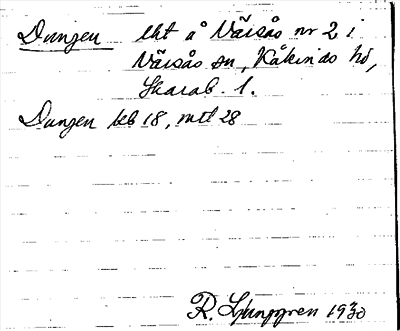 Dungen lht å Väring nr 2 i
Väring sn, Kåkinds hd,
Skarab. l.
Dungen leb 18, mtl 28
R. Ljunggren 1930